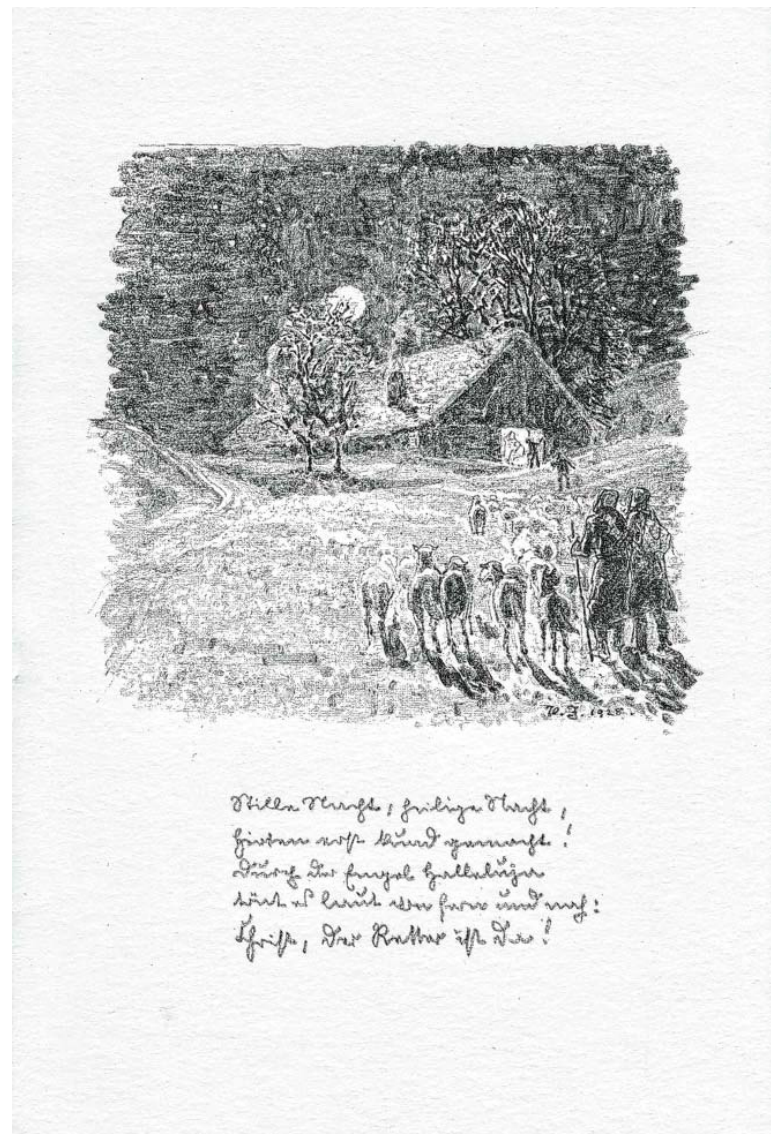 W. J. 1925.
Stille Nacht, heilige Nacht,
Hirten erst kund gemacht!
Durch der Engel Halleluja
tönt es laut von fern und nah:
Christ, der Retter ist da!